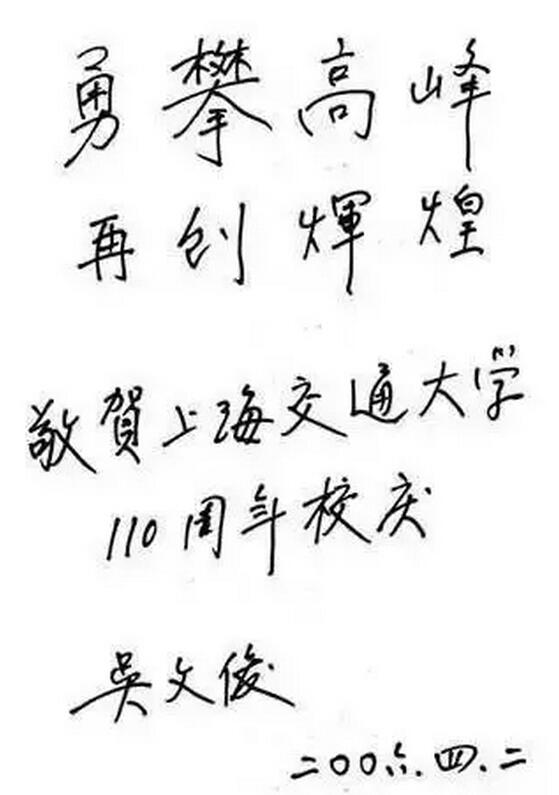 勇攀高峰
再创煇煌
敬賀上海交通大学
110周年校庆
吴文俊
二〇〇六.四.二